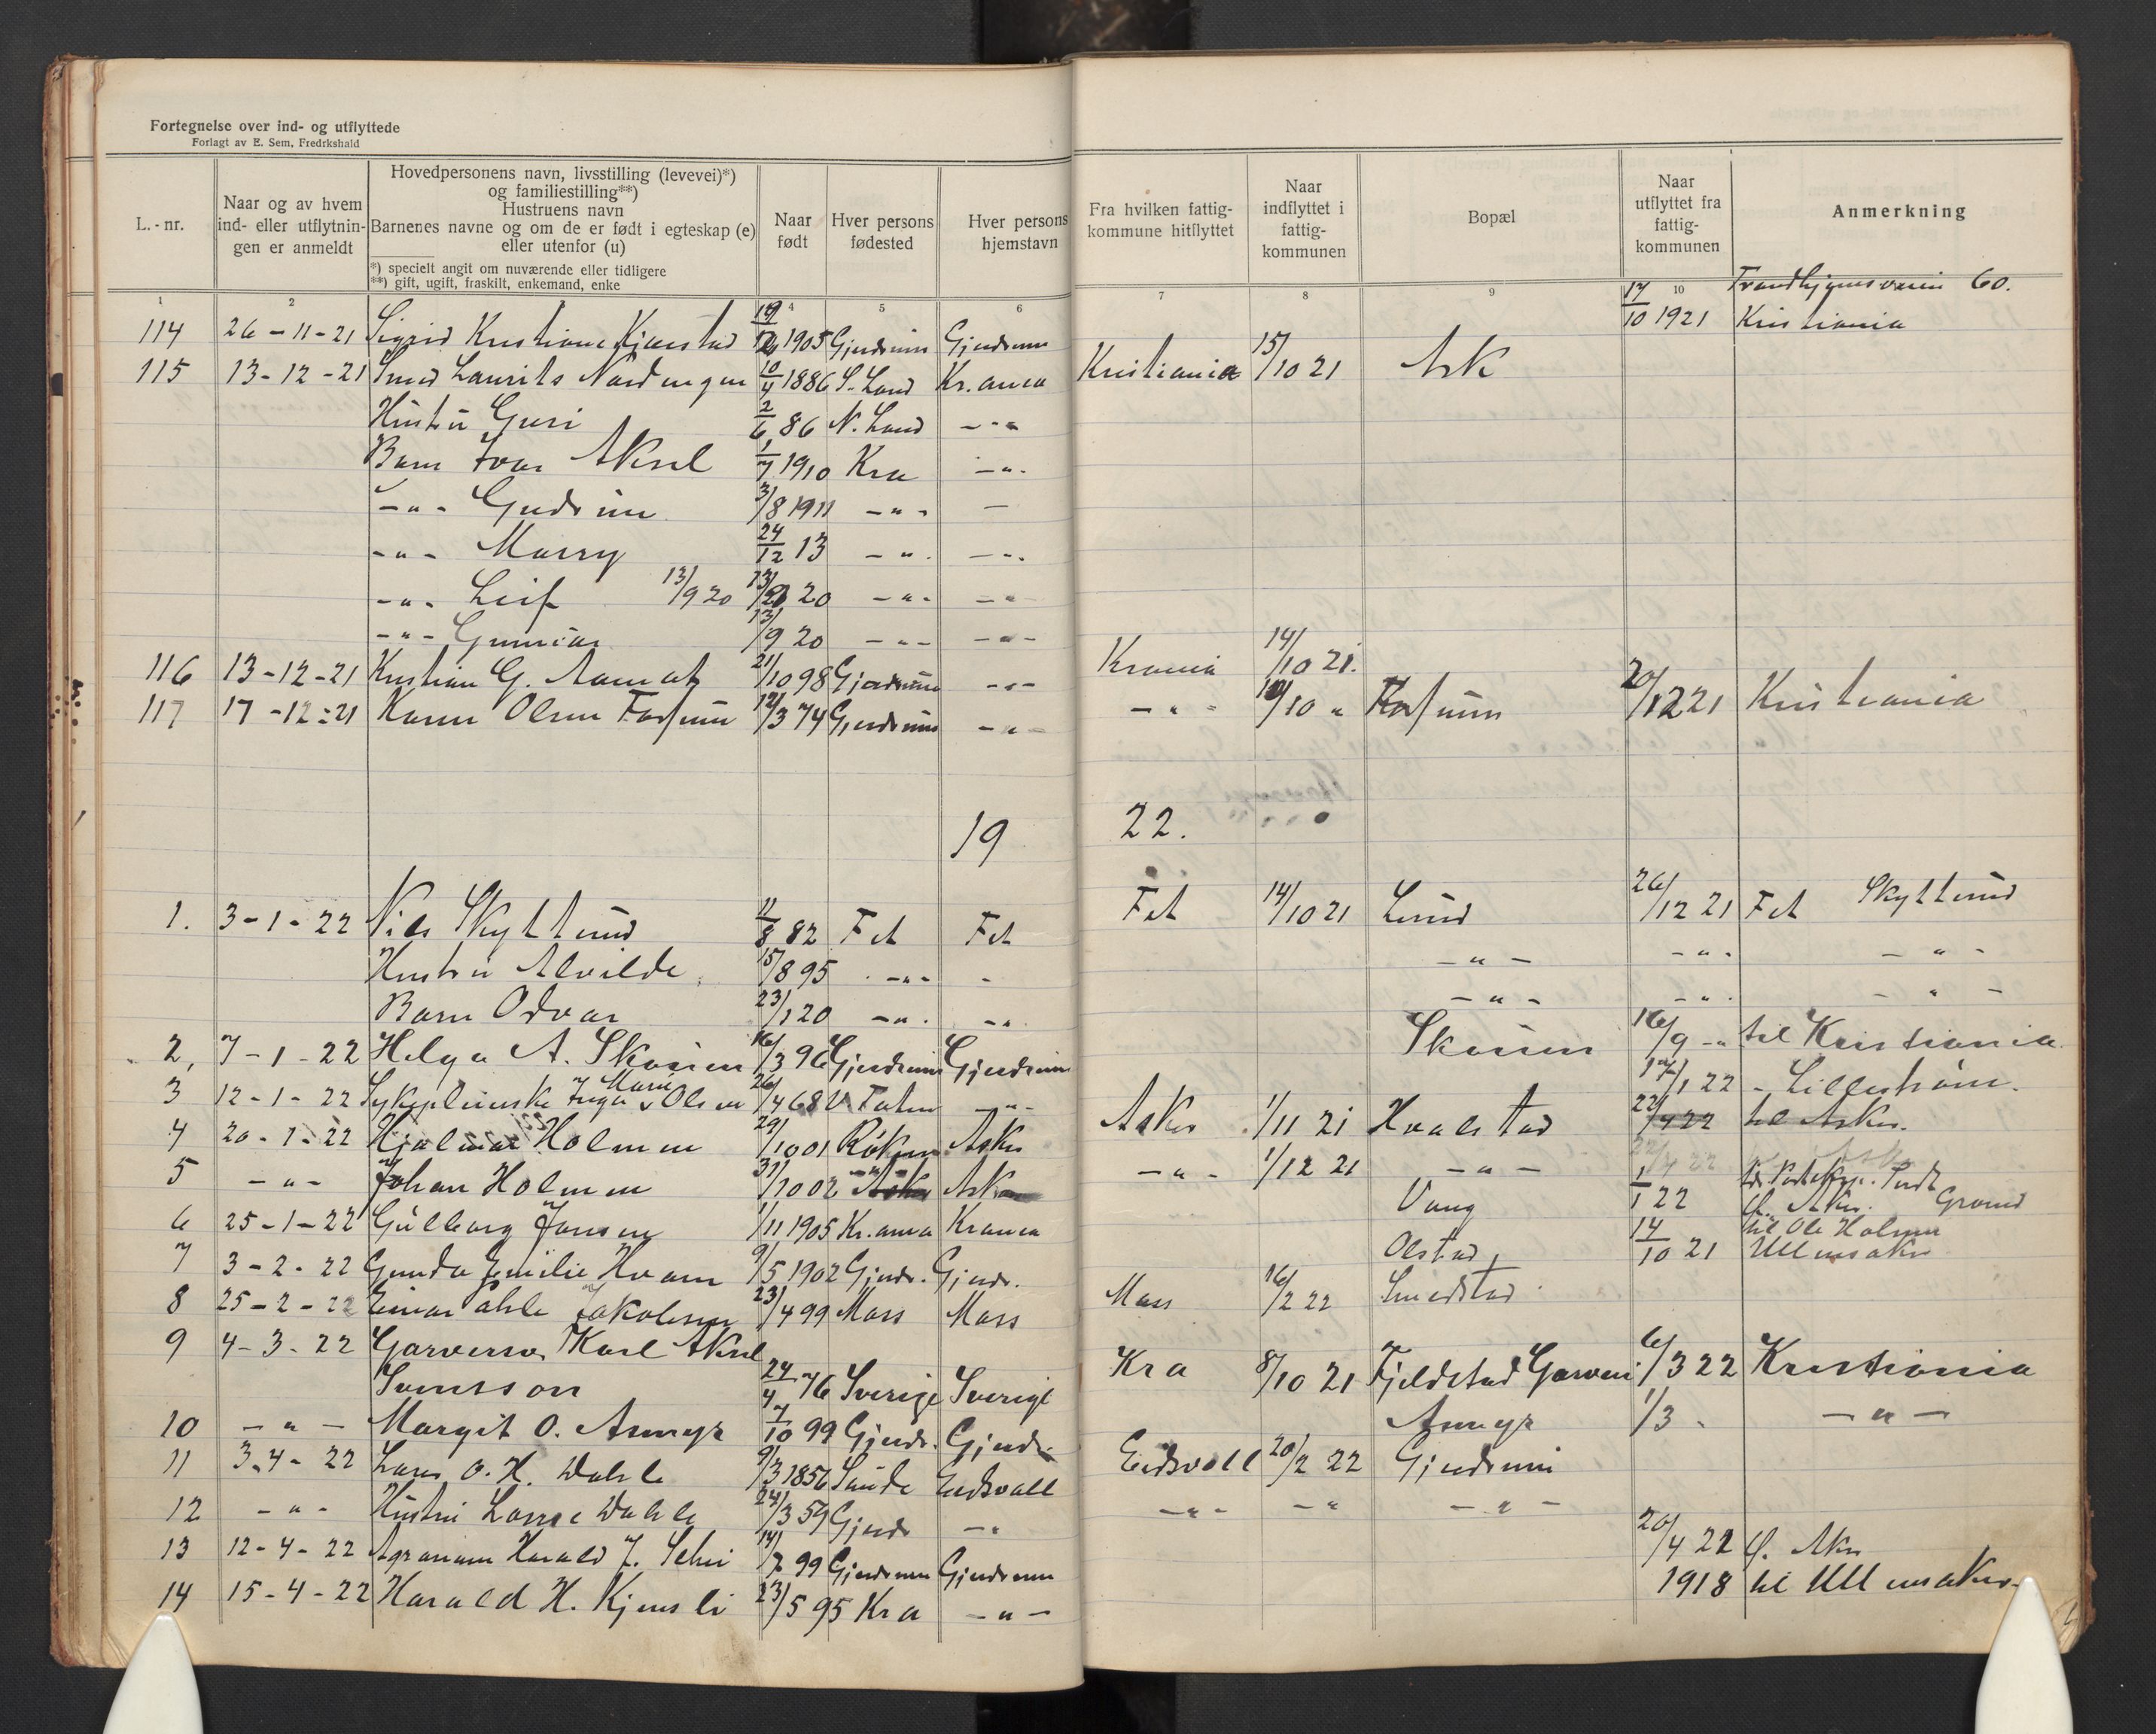 Fortegnelse over ind- og utflyttede
Forlagt av E. Sem, Fredrkshald
L.-nr.
Naar og av hvem ind- eller utflytnin-gen er anmeldt
Hovedpersonens navn, livsstilling (levevei)*) og familiestilling**) Hustruens navn Barnenes navne og om de er født i egteskap (e) eller utenfor (u)
*) specielt angit om nuværende eller tidligere
**) gift, ugift, fraskilt, enkemand, enke
Naar født
Hver persons fødested
Hver persons hjemstavn
Fra hvilken fattig-kommune hitflyttet
Naar indflyttet i fattig-kommunen
Bopæl
Naar utflyttet fra fattig-kommunen
Anmerkning
1 2 4 5 6 7 8 9 10
60.
114 26-11-21 Sigrid Kristiane Kjærstad 1905 Gjerdrum Gjerdrum 17/10 1921 Kristiania
115 13-12-21 Smed Laurits Nordengen 10/4 1886 S. Land Kr.ania Kristiania 15/10 21 Ask
Hustru Guri 2/6 86 N. Land -"-
Barn Ivar Aksel 1/7 1910 Kra -"-
-"- Gudrun 3/8 1911 -"- -
-"- Marry 24/12 13 -"- -"-
-"- Leif 13/9 20 20 -"- -"-
-"- Gunnar 13/9 20 -"- -"-
116 13-12-21 Kristian G. Aamot 21/10 98 Gjerdrum -"- Krania 14/10 21.
117 17-12-21 Karen Olsen Fossum 12/3 74 Gjerdrum -"- -"- /10 " Fossum 20/12 21 Kristiania
19 22.
1. 3-1-22 Nils Skyttlund 11/8 82 Fet Fet Fet 14/10 21 Lund 26/12 21 Fet Skyttlund
Hustru Alvilde 15/8 95 -"- - -"- -"- -"-
Barn Odvar 23/1 20 -"- -"- -"- -"- -"-
2, 7-1-22 Helga A. Skoien 16/3 96 Gjerdrum Gjerdrum Skoien 16/9 -" til Kristiania
3 12-1-22 Sykepleierske Inga Marie Olsen 26/4 68 V. Toten -"- 17/1 22 - Lillestrøm.
4 20-1-22 Hjalmar Holmen 29/10 01 Røken Asker Asker 1/11 21 Hvalstad 22/4 22 til Asker.
5 -"- Johan Holmen 31/10 02 -"- Asker Asker -"- 1/12 21 -"- 22/4 22 Asker
6 25-1-22 Gulborg Jansen 1/11 1905 Kr.ania Krania Vang 1/1 22 Ø. Aker. Grorud
til Ole Holmen
7 3-2-22 Gunda Emilie Hvam 9/5 1902 Gjerdr. Gjerdr. Olstad, 14/10 21 Ullensaker
8 25-2-22 Einar Jakobsen 23/4 99 Moss Moss Moss 16/2 22 Smedstad
9 4-3-22 Garversv. Karl Aksel
Svensson 24/4 76 Sverige Sverige Kra 8/10 21 Fjeldstad Garveri 6/3 22 Kristiania
10 -"- Margit O. Asmyr 7/10 99 Gjerdr. Gjerdr. Asmyr 1/3 - -"-
11 3-4-22 Lars O. H. Dahle 9/3 1856 Sande Eidsvoll Eidsvoll 20/2 22 Gjerdrum
12 -"- Hustru Dahle 24/3 59 Gjerdr -" -"- -" -"-
13 12-4-22 Agronom Harald J. 14/7 99 Gjerdrum Gjerdrum 20/4 22 Ø. Aker
14 15-4-22 Harald H. Kjensli 23/5 95 Kra -"- 1918 til Ullensaker